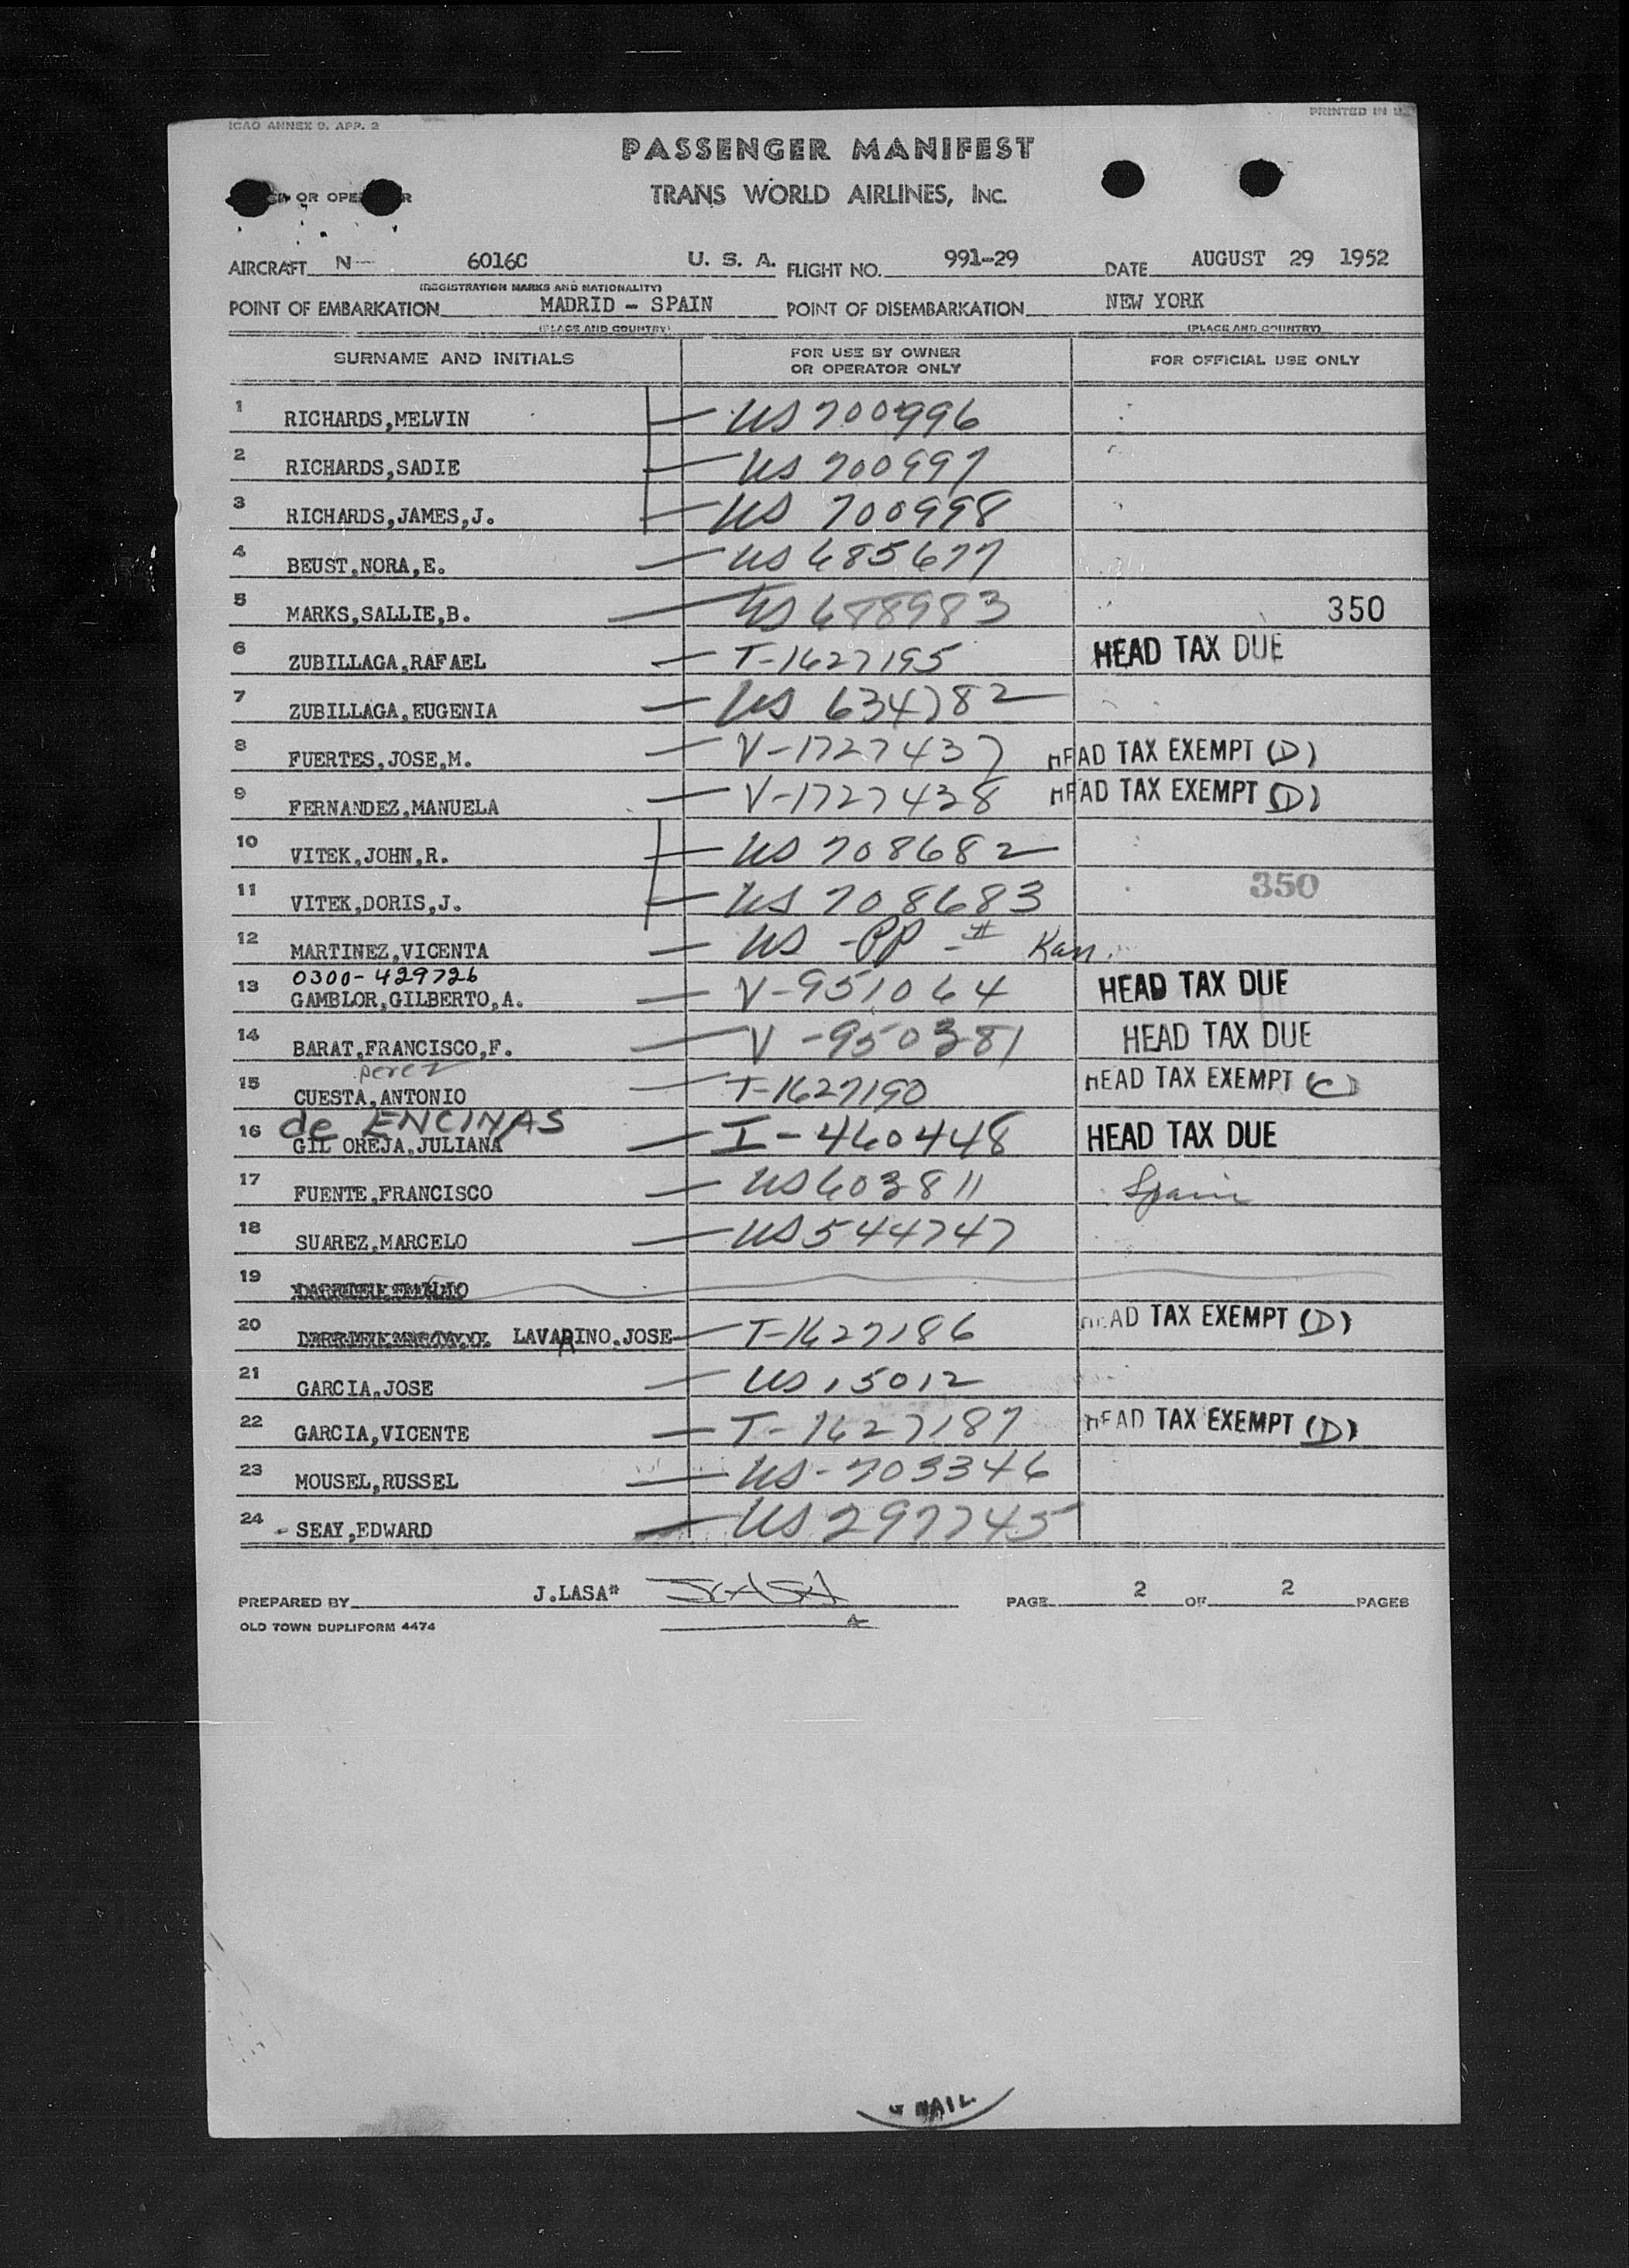 ICAO ANNEX 9, APP. 2
PRINTED IN U.
PASSENGER MANIFEST
OR
TRANS WORLD AIRLINES, INC.
AIRCRAFT N- 6016C U. S. A. FLIGHT NO. 991-29 DATE AUGUST 29 1952
(REGISTRATION MARKS AND NATIONALITY)
POINT OF EMBARKATION MADRID - SPAIN POINT OF DISEMBARKATION NEW YORK
(PLACE AND COUNTRY) (PLACE AND COUNTRY)
SURNAME AND INITIALS FOR USE BY OWNER OR OPERATOR ONLY FOR OFFICIAL USE ONLY
1 RICHARDS,MELVIN — US 700996
2 RICHARDS,SADIE — US 700997
3 RICHARDS,JAMES,J. — US 700998
4 BEUST,NORA,E. — US 685677
5 MARKS,SALLIE,B. — US 688983 350
6 ZUBILLAGA,RAFAEL — T-1627195 HEAD TAX DUE
7 ZUBILLAGA,EUGENIA — US 634782
8 FUERTES,JOSE,M. — V-1727437 HEAD TAX EXEMPT (D)
9 FERNANDEZ,MANUELA — V-1727438 HEAD TAX EXEMPT (D)
10 VITEK,JOHN,R. — US 708682
11 VITEK,DORIS,J. — US 708683 350
12 MARTINEZ,VICENTA — US -PP-# Kan.
0300-429726
13 GAMBLOR,GILBERTO,A. — V-951064 HEAD TAX DUE
14 BARAT,FRANCISCO,F. — V-950381 HEAD TAX DUE
perez
15 CUESTA,ANTONIO — T-1627190 HEAD TAX EXEMPT (C)
de ENCINAS
16 GIL OREJA,JULIANA — I-460448 HEAD TAX DUE
17 FUENTE,FRANCISCO — US603811 Spain
18 SUAREZ,MARCELO — US544747
19
20 LAVARINO,JOSE — T-1627186 HEAD TAX EXEMPT (D)
21 GARCIA,JOSE — US 15012
22 GARCIA,VICENTE — T-1627187 HEAD TAX EXEMPT (D)
23 MOUSEL,RUSSEL — US-703346
24 - SEAY,EDWARD — US 297745
PREPARED BY J.LASA* JLASA PAGE 2 OF 2 PAGES
OLD TOWN DUPLIFORM 4474